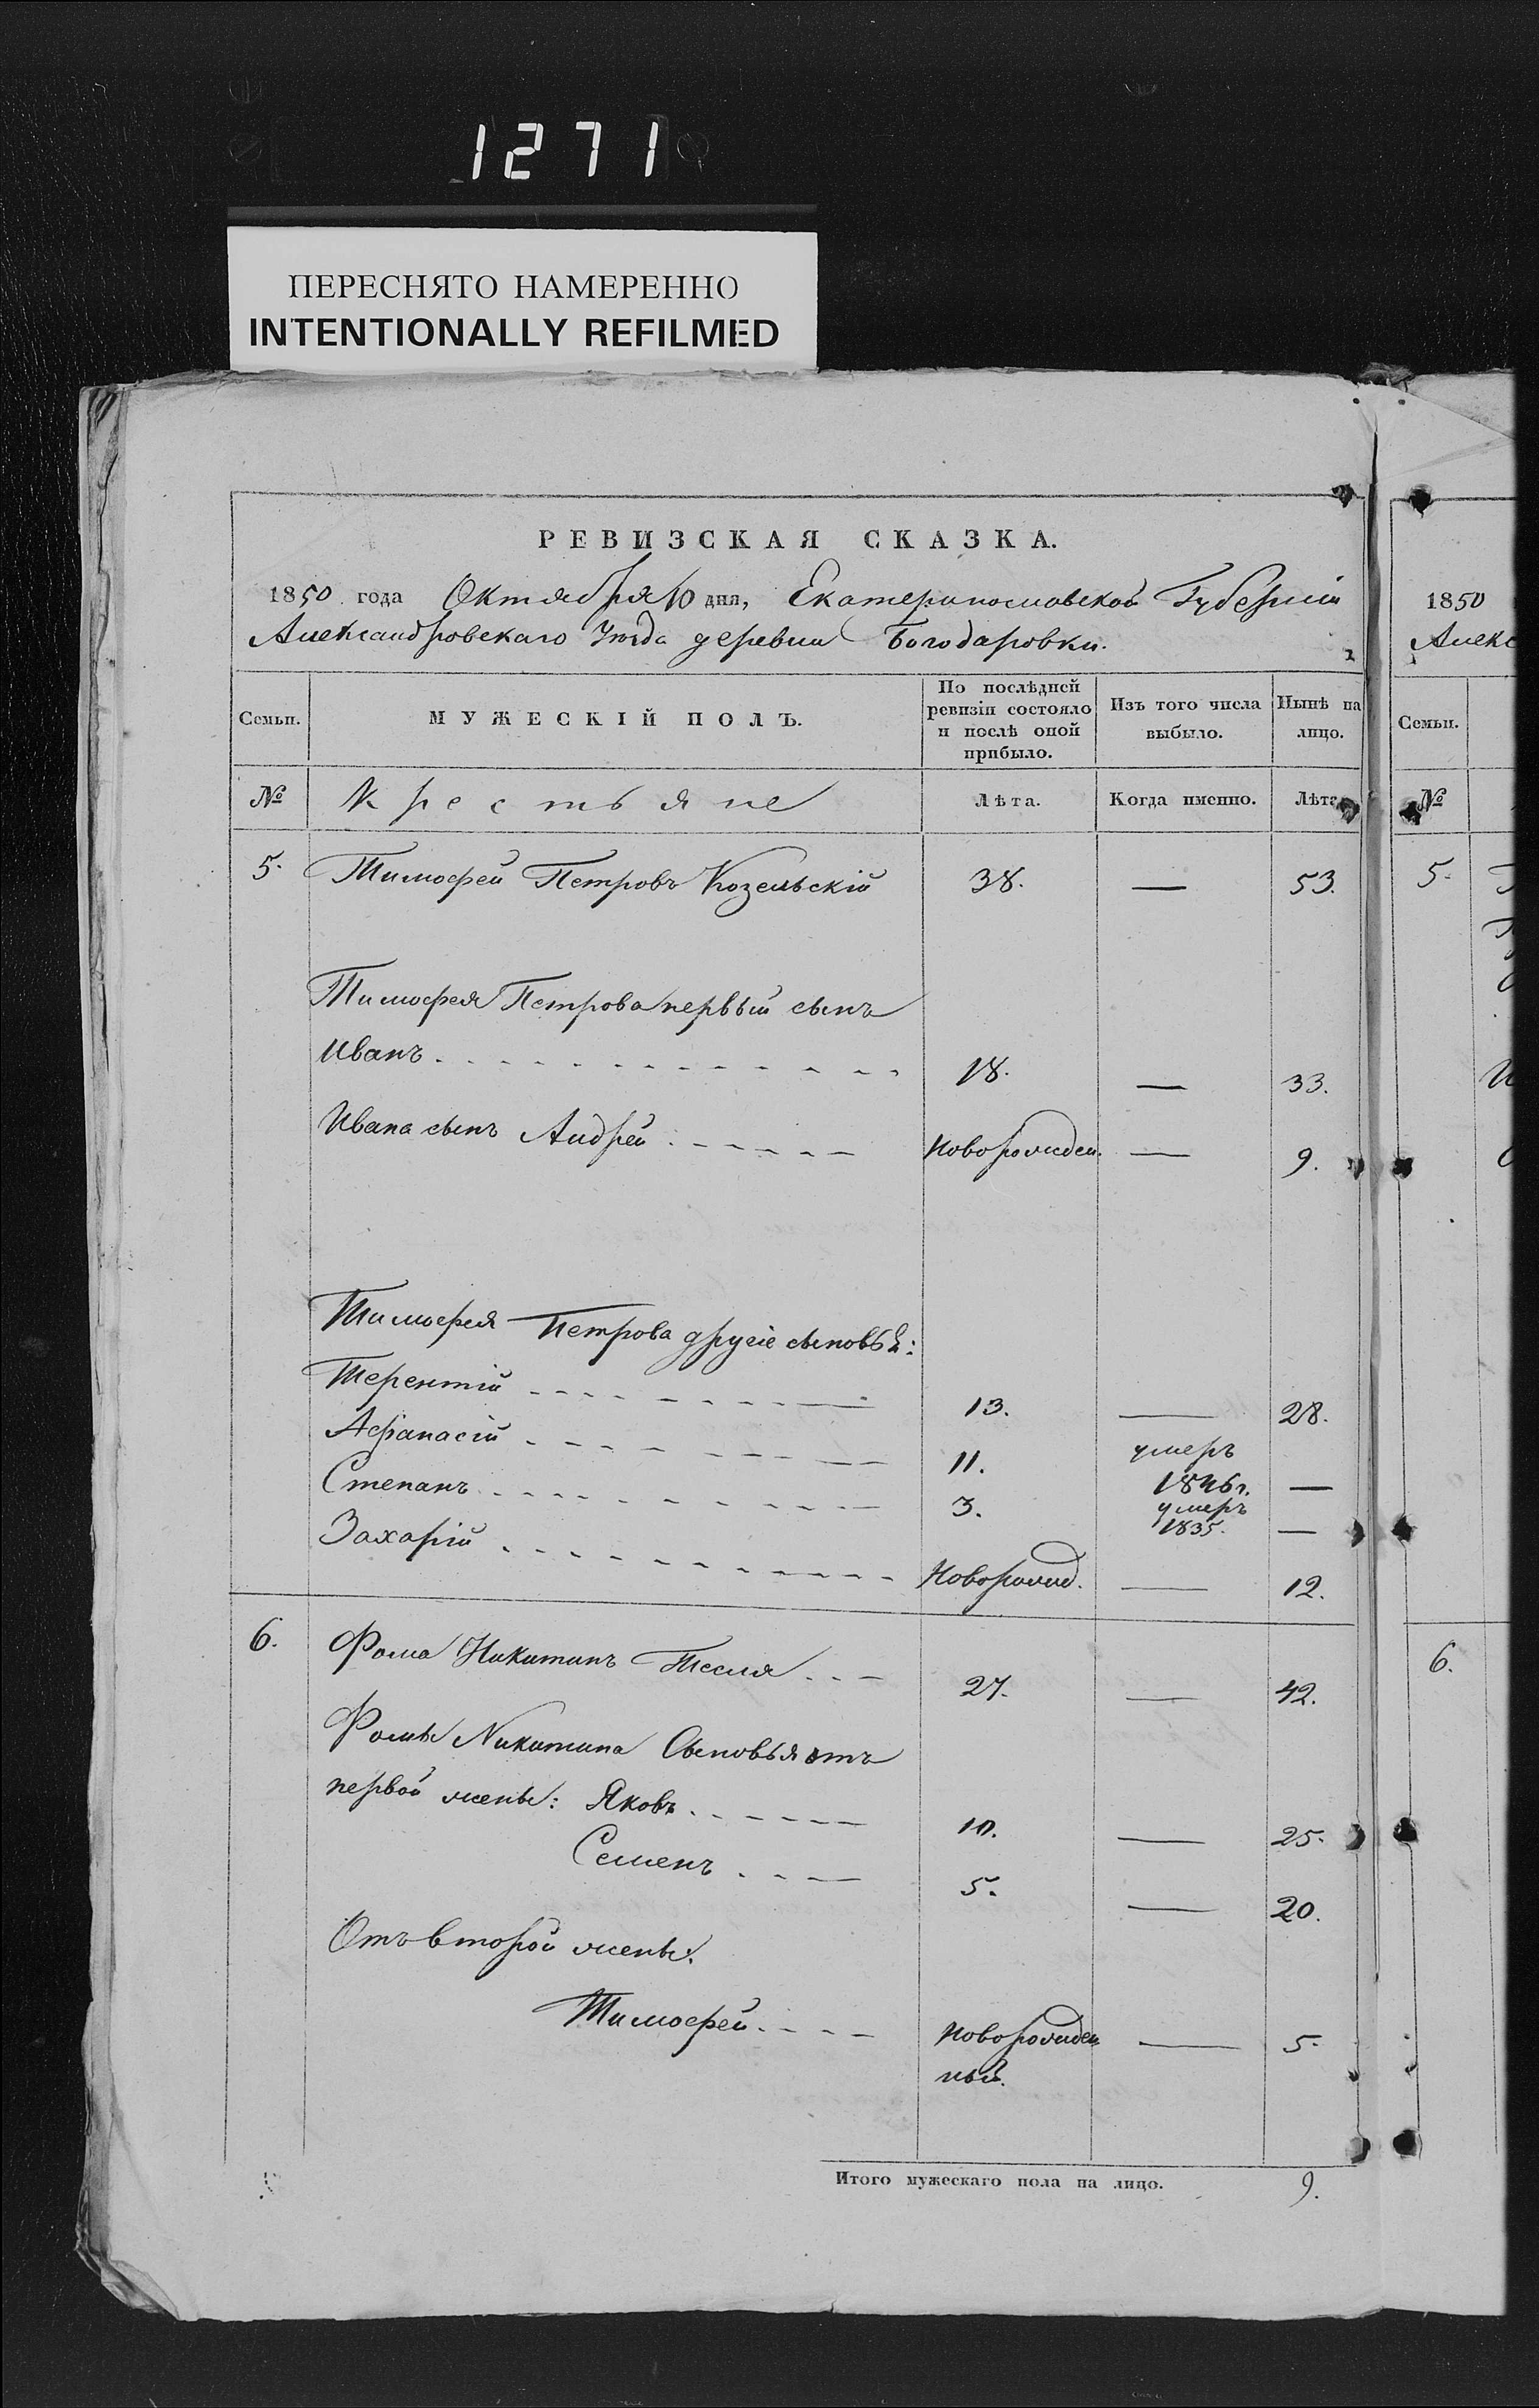 1271
ПЕРЕСНЯТО НАМЕРЕННО
INTENTIONALLY REFILMED
РЕВИЗСКАЯ СКАЗКА.
1850 года Октября 10 дня, Екатеринославской Губерніи
Александровскаго Уѣзда деревни Богодаровки.
Семьи. МУЖЕСКІЙ ПОЛЪ. По послѣдней ревизіи состояло и послѣ оной прибыло. Изъ того числа выбыло. Нынѣ на лицо.
№ Крестьяне Лѣта. Когда именно. Лѣта
5. Тимофей Петровъ Козельскій 38. — 53.
Тимофея Петрова первый сынъ
Иванъ 18. — 33.
Ивана сынъ Андрей новорожден. — 9.
Тимофея Петрова другіе сыновья:
Терентій 13. — 28.
Афанасій 11. умеръ 1846г. —
Степанъ 3. умеръ 1835. —
Захарій Новорожд. — 12.
6. Фома Никитинъ Тесля 27. — 42.
Фомы Никитина Сыновья отъ
первой жены: Яковъ 10. — 25.
Семенъ 5. — 20.
Отъ второй жены:
Тимофей новорожден
ный. — 5.
Итого мужескаго пола на лицо. 9.
1850
Алекс
Семьи.
№
5.
6.